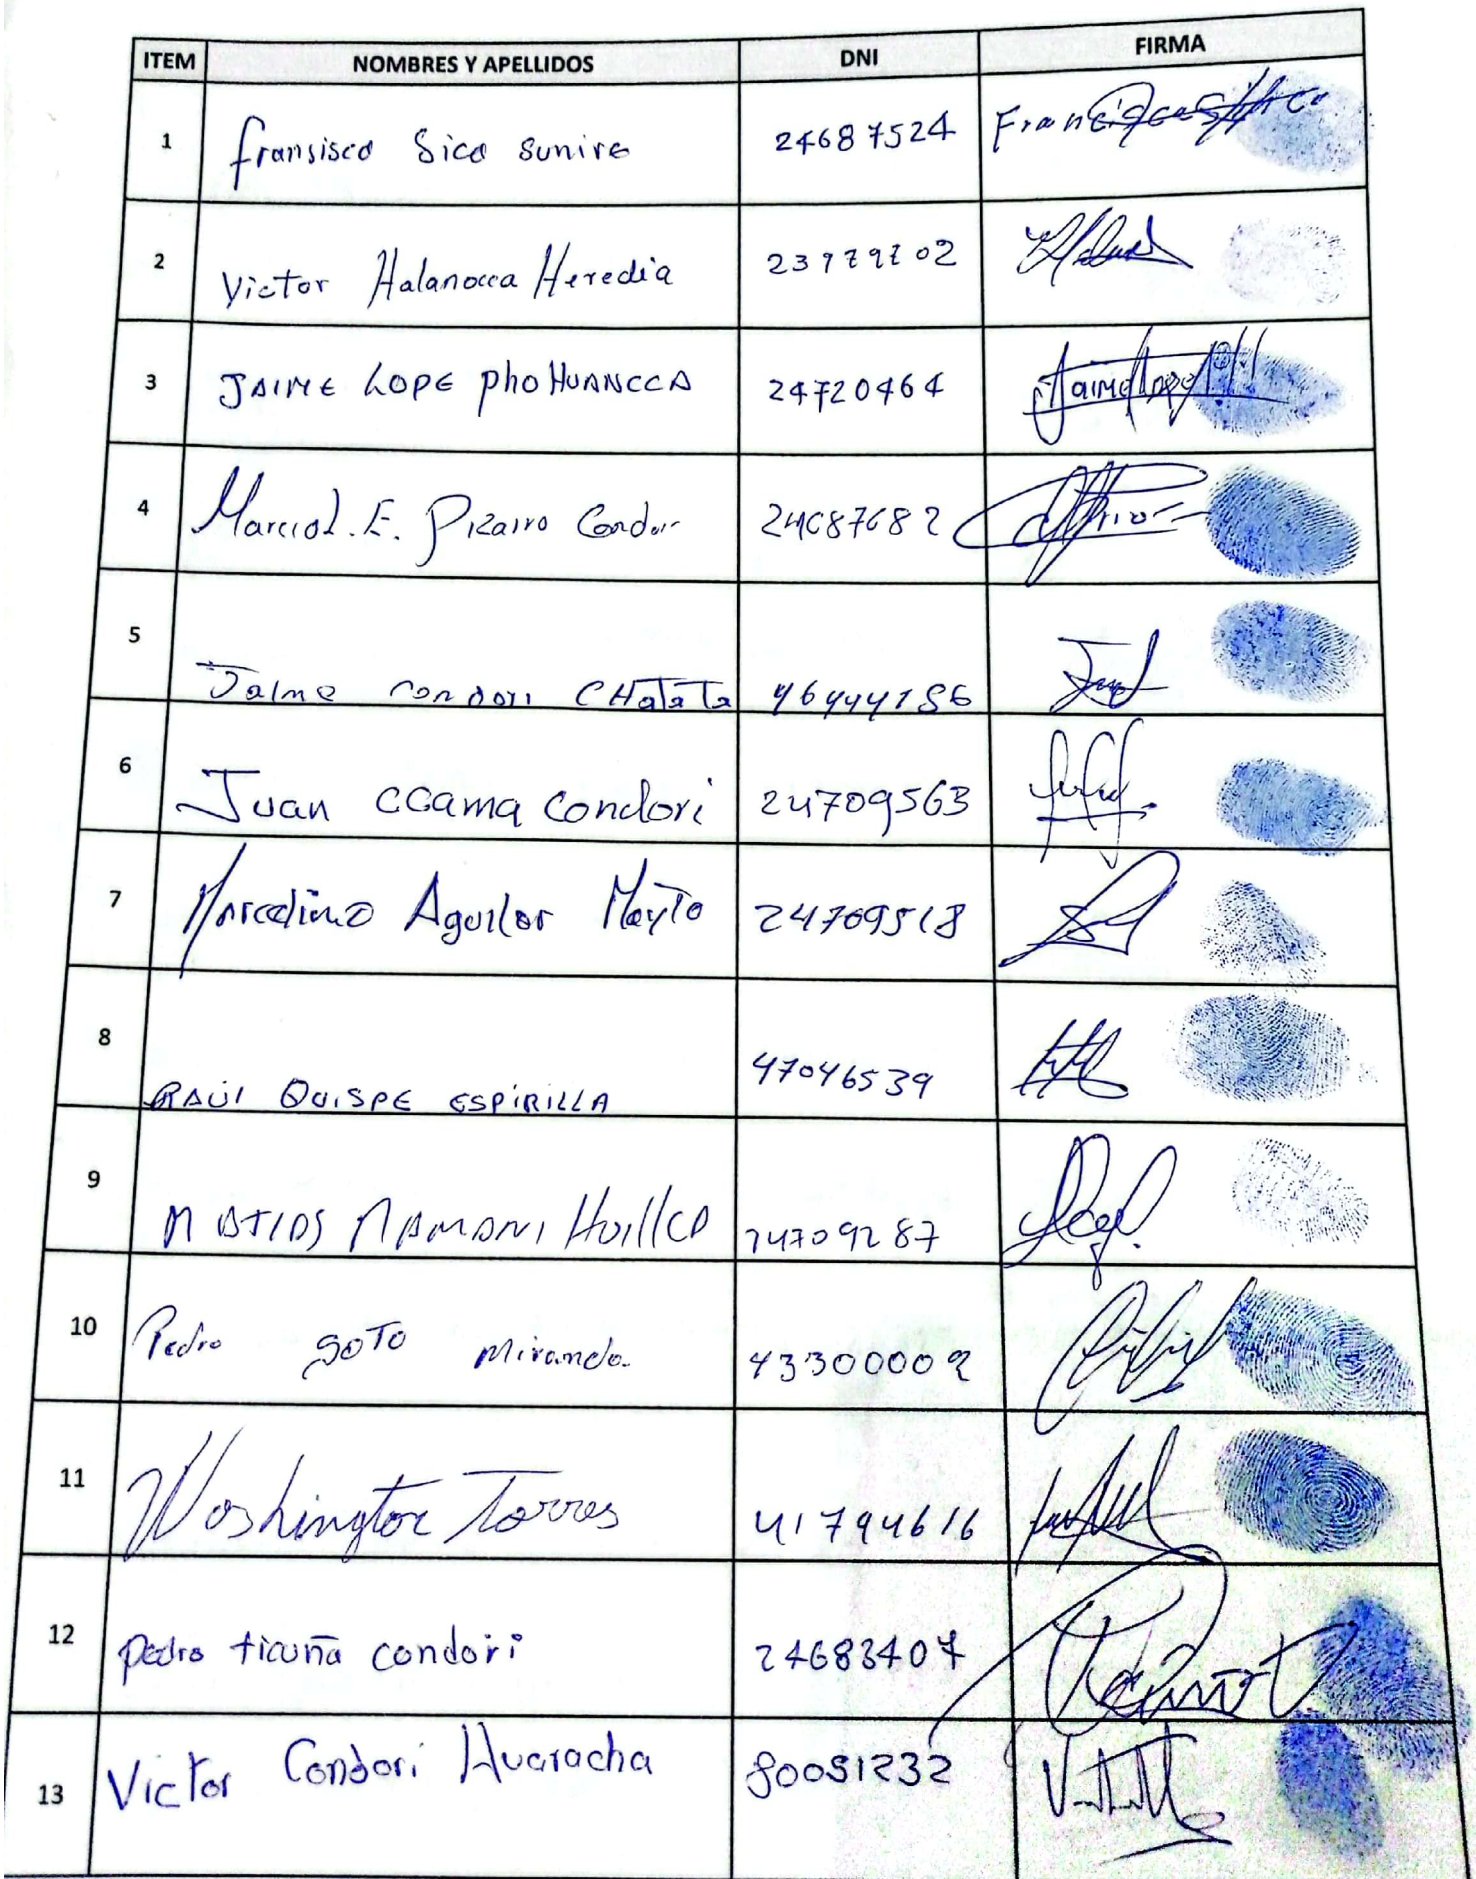 ITEM NOMBRES Y APELLIDOS DNI FIRMA
1 fransisco Sico sunire 24687524
2 Victor Halanocca Heredia 23979202
3 JAIME LOPE PhoHUANCCA 24720464
4 Marcial. E. Pizarro Condor 24687682
5 Jaime condori CHaTaTa 46444186
6 Juan ccama condori 24709563
7 Marcelino Aguilar Mayto 24709518
8 RAÚl QUISPE ESPIRILLA 47046539
9 MATIAS MAMANI HUillCA 24709287
10 Pedro SOTO Miranda 43300002
11 Washington Torres 41794616
12 pedro ticuña condori 24683407
13 Victor Condori Huaracha 80051232